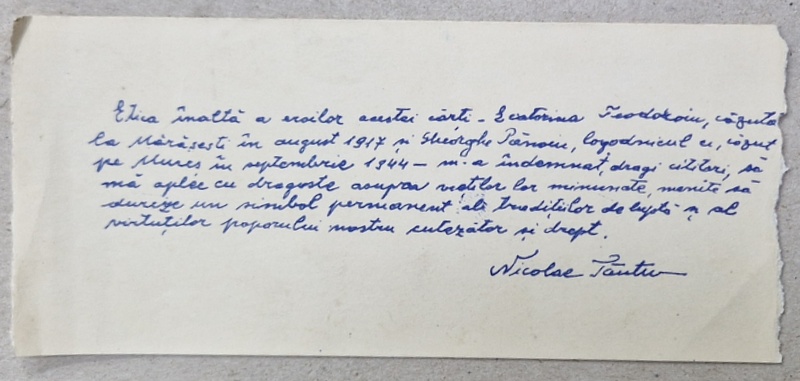 Etica înaltă a eroilor acestei cărți - Ecaterina Teodoroiu, căzută
la Mărășești în august 1917 și Gheorghe Pănoiu, logodnicul ei, căzut
pe Mureș în septembrie 1944 - m-a îndemnat, dragi cititori, să
mă aplec cu dragoste asupra vieților lor minunate, menite să
dureze un simbol permanent al tradițiilor de luptă și al
virtuților poporului nostru cutezător și drept.
Nicolae Tăutu